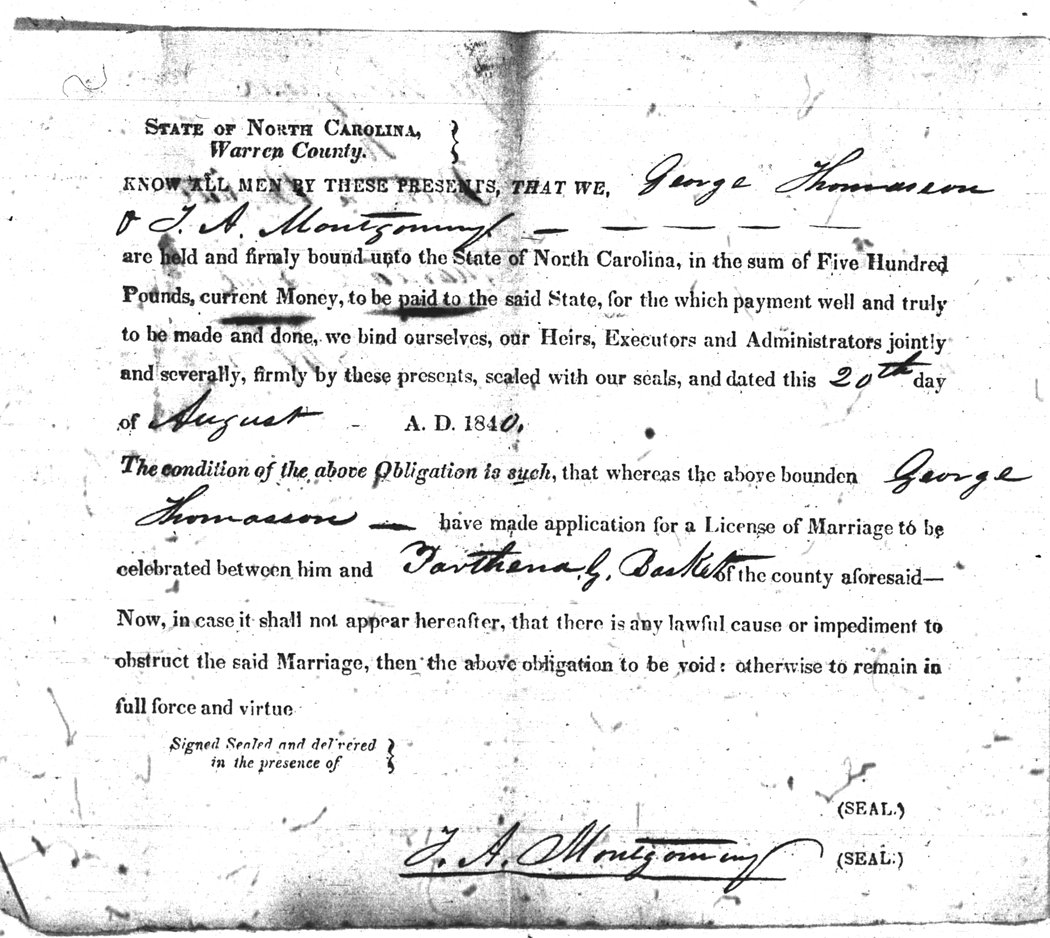 STATE OF NORTH CAROLINA,
Warren County.
KNOW ALL MEN BY THESE PRESENTS, THAT WE, George Thomasson
& T. A. Montgomery — — — — —
are held and firmly bound unto the State of North Carolina, in the sum of Five Hundred
Pounds, current Money, to be paid to the said State, for the which payment well and truly
to be made and done, we bind ourselves, our Heirs, Executors and Administrators jointly
and severally, firmly by these presents, sealed with our seals, and dated this 20th day
of August - A. D. 1840.
The condition of the above Obligation is such, that whereas the above bounden George
Thomasson — have made application for a License of Marriage to be
celebrated between him and Parthena G. Basket of the county aforesaid—
Now, in case it shall not appear hereafter, that there is any lawful cause or impediment to
obstruct the said Marriage, then the above obligation to be void: otherwise to remain in
full force and virtue
Signed Sealed and delivered
in the presence of
(SEAL.)
T. A. Montgomery (SEAL.)